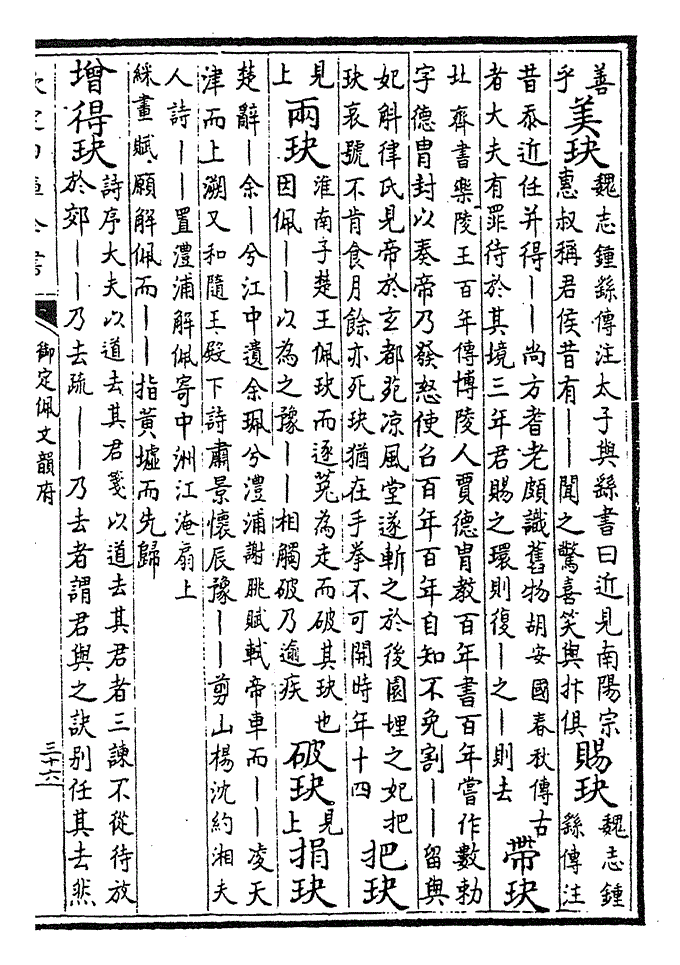 善
乎
美玦
魏志鍾繇傳注太子與繇書曰近見南陽宗
惠叔稱君侯昔有——聞之驚喜笑與抃俱
賜玦
魏志鍾
繇傳注
昔忝近任并得——尚方耆老頗識舊物胡安國春秋傳古
者大夫有罪待於其境三年君賜之環則復—之—則去
帶玦
北齊書樂陵王百年傳博陵人賈德胄教百年書百年嘗作數勅
字德胄封以奏帝乃發怒使召百年百年自知不免割——留與
妃斛律氏見帝於玄都苑凉風堂遂斬之於後園埋之妃把
玦哀號不肯食月餘亦死玦猶在手拳不可開時年十四
把玦
見
上
兩玦
淮南子楚王佩玦而逐菟為走而破其玦也
因佩——以為之豫——相觸破乃逾疾
破玦
見
上
捐玦
楚辭—余—兮江中遺余珮兮澧浦謝朓賦軾帝車而——凌天
津而上溯又和隨王殿下詩肅景懷辰豫——剪山楊沈約湘夫
人詩——置澧浦解佩寄中洲江淹扇上
綵畫賦願解佩而——指黃墟而先歸
增得玦
詩序大夫以道去其君箋以道去其君者三諫不從待放
於郊——乃去疏——乃去者謂君與之訣别任其去然
御定佩文韻府
三十六